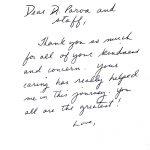 Dear Dr. Parva and
staff,
Thank you so much
for all of your kindness
and concern. Your
caring has really helped
me in this journey. You
all are the greatest!
Love,